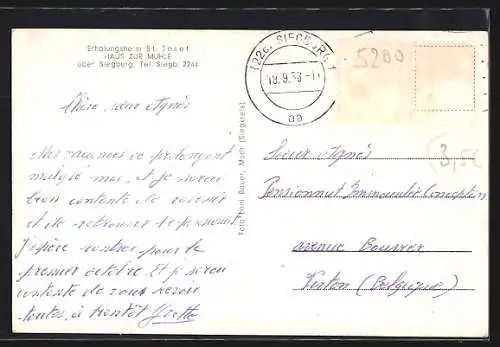 Erholungsheim St. Josef
HAUS ZUR MÜHLE
über Siegburg, Tel. Siegb. 2244
(22c) SIEGBURG 1
18.9.58
aa
5200
3,50
Foto Toni Bauer, Much (Siegkreis)
Chère sœur Agnès
Mes vacances se prolongent
malgré moi, et je serai
très contente de revenir
et de retrouver le pensionnat
J'espère rentrer pour le
premier octobre. Et je serai
contente de vous revoir
toutes, à bientôt Yvette
Sœur Agnès
Pensionnat Immaculée Conception
avenue Bouvier
Virton (Belgique)